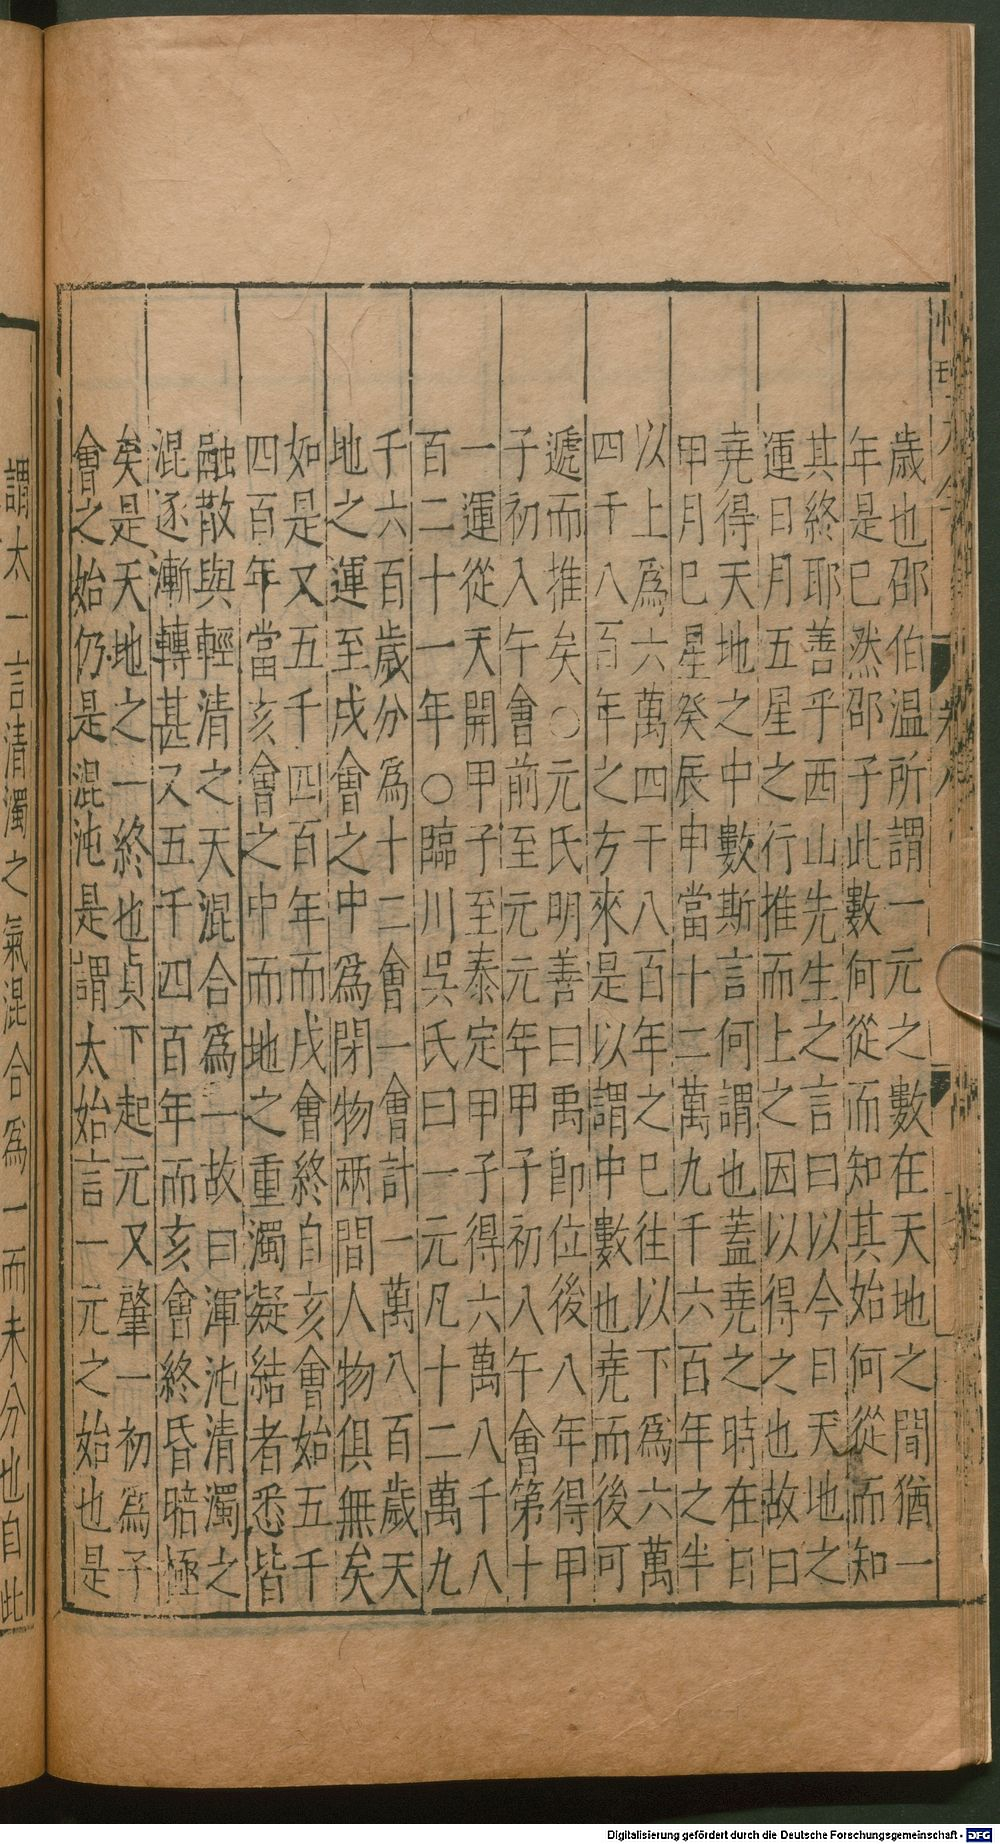 歲也邵伯温所謂一元之數在天地之間猶一
年是巳然邵子此數何從而知其始何從而知
其終耶善乎西山先生之言曰以今日天地之
運日月五星之行推而上之因以得之也故曰
堯得天地之中數斯言何謂也蓋堯之時在日
甲月巳星癸辰申當十二萬九千六百年之半
以上爲六萬四千八百年之巳往以下爲六萬
四千八百年之方來是以謂中數也堯而後可
遞而推矣○元氏明善曰禹卽位後八年得甲
子初入午會前至元元年甲子初八午會第十
一運從天開甲子至泰定甲子得六萬八千八
百二十一年○臨川吳氏曰一元凡十二萬九
千六百歲分爲十二會一會計一萬八百歲天
地之運至戌會之中爲閉物兩間人物俱無矣
如是又五千四百年而戌會終自亥會始五千
四百年當亥會之中而地之重濁凝結者悉皆
融散與輕清之天混合爲一故曰渾沌清濁之
混逐漸轉甚又五千四百年而亥會終昏暗極
矣是天地之一終也貞下起元又肇一初爲子
會之始仍是混沌是謂太始言一元之始也是
謂太一言清濁之氣混合爲一而未分也自此
Digitalisierung gefördert durch die Deutsche Forschungsgemeinschaft - DFG